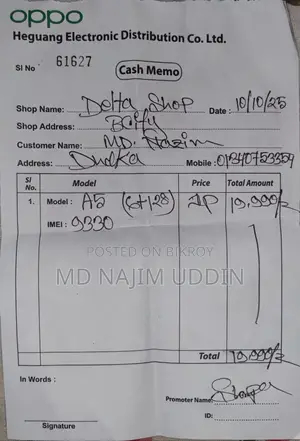 oppo
Heguang Electronic Distribution Co. Ltd.
Sl No : 61627
Cash Memo
Shop Name: Delta Shop Date : 10/10/25
Shop Address:
Customer Name: MD. Nazim
Address: Dhaka Mobile :
Sl No. Model Price Total Amount
1. Model : A5 (6+128) 19,999/-
IMEI : 9330
POSTED ON BIKROY
MD NAJIM UDDIN
Total 19,999/-
In Words :
Promoter Name:
ID:
Signature